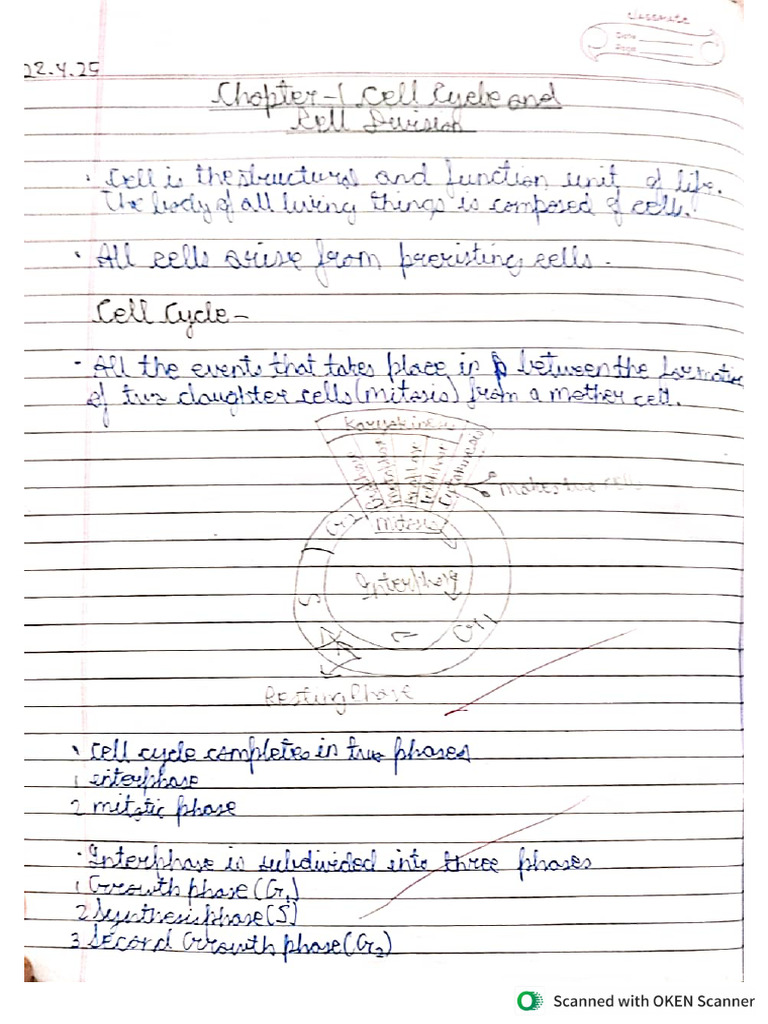 classmate
Date
Page
22.4.25
Chapter-1 Cell Cycle and
Cell Division
· Cell is the structural and function unit of life.
The body of all living things is composed of cell.
· All cells arise from prexisting cells.
Cell Cycle -
- All the events that takes place in between the formation
of two daughter cells (mitosis) from a mother cell.
Karyokinesis
Makes two cells
G2
Mitosis
Interphase
S
G1
Resting Phase
· Cell cycle completes in two phases
1 interphase
2 mitotic phase
· Interphase is subdivided into three phases
1 Growth phase (G1)
2 Synthesis phase (S)
3 Second Growth phase (G2)
Scanned with OKEN Scanner